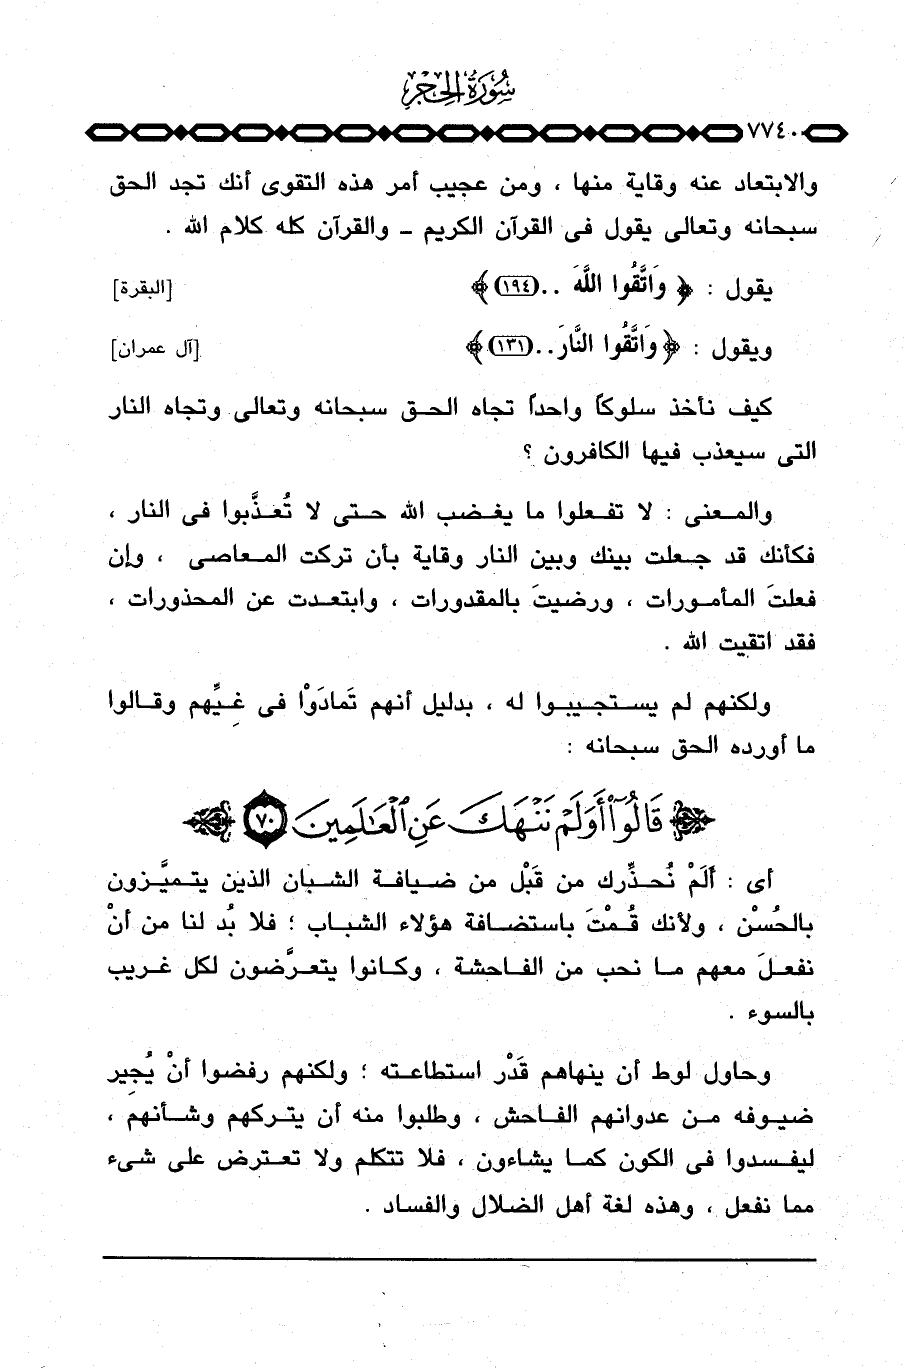 سُورَةُ الحِجْرِ
٧٧٤٠
والابتعاد عنه وقاية منها ، ومن عجيب أمر هذه التقوى أنك تجد الحق
سبحانه وتعالى يقول فى القرآن الكريم – والقرآن كله كلام الله .
يقول : ﴿ وَاتَّقُوا اللَّهَ .. (١٩٤) ﴾ [البقرة]
ويقول : ﴿ وَاتَّقُوا النَّارَ .. (١٣١) ﴾ [آل عمران]
كيف نأخذ سلوكاً واحداً تجاه الحق سبحانه وتعالى وتجاه النار
التى سيعذب فيها الكافرون ؟
والمعنى : لا تفعلوا ما يغضب الله حتى لا تُعذَّبوا فى النار ،
فكأنك قد جعلت بينك وبين النار وقاية بأن تركت المعاصى ، وإن
فعلتَ المأمورات ، ورضيتَ بالمقدورات ، وابتعدت عن المحذورات ،
فقد اتقيت الله .
ولكنهم لم يستجيبوا له ، بدليل أنهم تَمادَوْا فى غيِّهم وقالوا
ما أورده الحق سبحانه :
﴿ قَالُوٓا۟ أَوَلَمْ نَنْهَكَ عَنِ ٱلْعَـٰلَمِينَ ٧٠ ﴾
أى : أَلَمْ نُحذِّرك من قَبْل من ضيافة الشبان الذين يتميَّزون
بالحُسْن ، ولأنك قُمْتَ باستضافة هؤلاء الشباب ؛ فلا بُد لنا من أنْ
نفعلَ معهم ما نحب من الفاحشة ، وكانوا يتعرَّضون لكل غريب
بالسوء .
وحاول لوط أن ينهاهم قَدْر استطاعته ؛ ولكنهم رفضوا أنْ يُجِير
ضيوفه من عدوانهم الفاحش ، وطلبوا منه أن يتركهم وشأنهم ،
ليفسدوا فى الكون كما يشاءون ، فلا تتكلم ولا تعترض على شىء
مما نفعل ، وهذه لغة أهل الضلال والفساد .